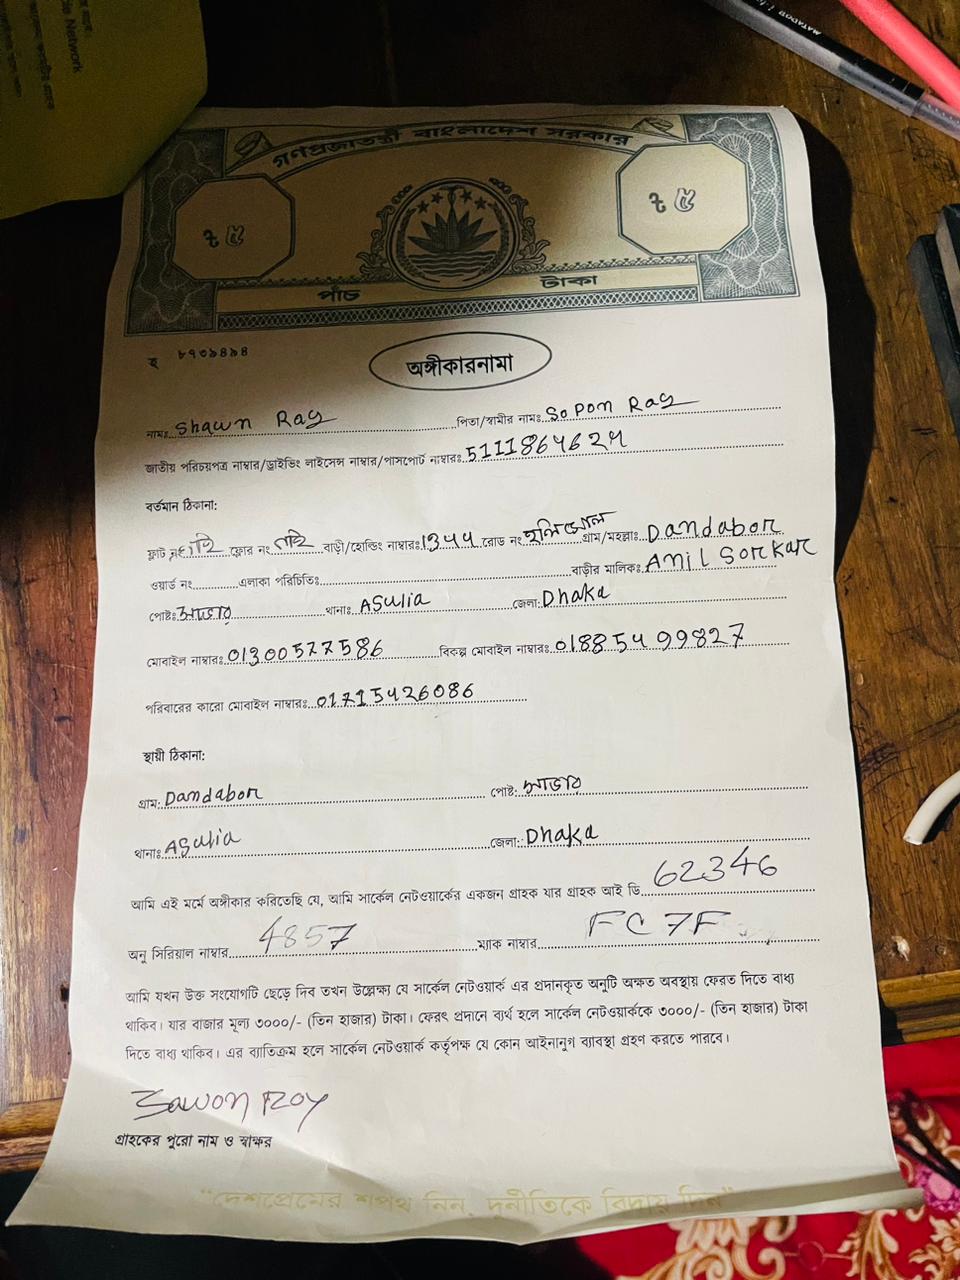 Network
গণপ্রজাতন্ত্রী বাংলাদেশ সরকার
৳ ৫
৳ ৫
পাঁচ টাকা
হ ৮৭৩৯৪৯৪
অঙ্গীকারনামা
নামঃ Shawn Ray পিতা/স্বামীর নামঃ Sopon Ray
জাতীয় পরিচয়পত্র নাম্বার/ড্রাইভিং লাইসেন্স নাম্বার/পাসপোর্ট নাম্বারঃ
বর্তমান ঠিকানা:
ফ্লাট নং নাই ফ্লোর নং নাই বাড়ী/হোল্ডিং নাম্বারঃ 1344 রোড নং গ্রাম/মহল্লাঃ Dandabor
ওয়ার্ড নং এলাকা পরিচিতিঃ বাড়ীর মালিক: Anil Sorkar
পোষ্টঃ সাভার থানাঃ ASulia জেলা: Dhaka
মোবাইল নাম্বারঃ 01300577586 বিকল্প মোবাইল নাম্বারঃ 01885499827
পরিবারের কারো মোবাইল নাম্বারঃ 01715426086
স্থায়ী ঠিকানা:
গ্রাম: Dandabor পোষ্ট: সাভার
থানাঃ ASulia জেলা: Dhaka
আমি এই মর্মে অঙ্গীকার করিতেছি যে, আমি সার্কেল নেটওয়ার্কের একজন গ্রাহক যার গ্রাহক আই ডি 62346
অনু সিরিয়াল নাম্বার 4857 ম্যাক নাম্বার FC7F
আমি যখন উক্ত সংযোগটি ছেড়ে দিব তখন উল্লেক্ষ্য যে সার্কেল নেটওয়ার্ক এর প্রদানকৃত অনুটি অক্ষত অবস্থায় ফেরত দিতে বাধ্য
থাকিব। যার বাজার মূল্য ৩০০০/- (তিন হাজার) টাকা। ফেরৎ প্রদানে ব্যর্থ হলে সার্কেল নেটওয়ার্ককে ৩০০০/- (তিন হাজার) টাকা
দিতে বাধ্য থাকিব। এর ব্যতিক্রম হলে সার্কেল নেটওয়ার্ক কর্তৃপক্ষ যে কোন আইনানুগ ব্যাবস্থা গ্রহণ করতে পারবে।
Sawon Roy
গ্রাহকের পুরো নাম ও স্বাক্ষর
"দেশপ্রেমের শপথ নিন, দুর্নীতিকে বিদায় দিন"